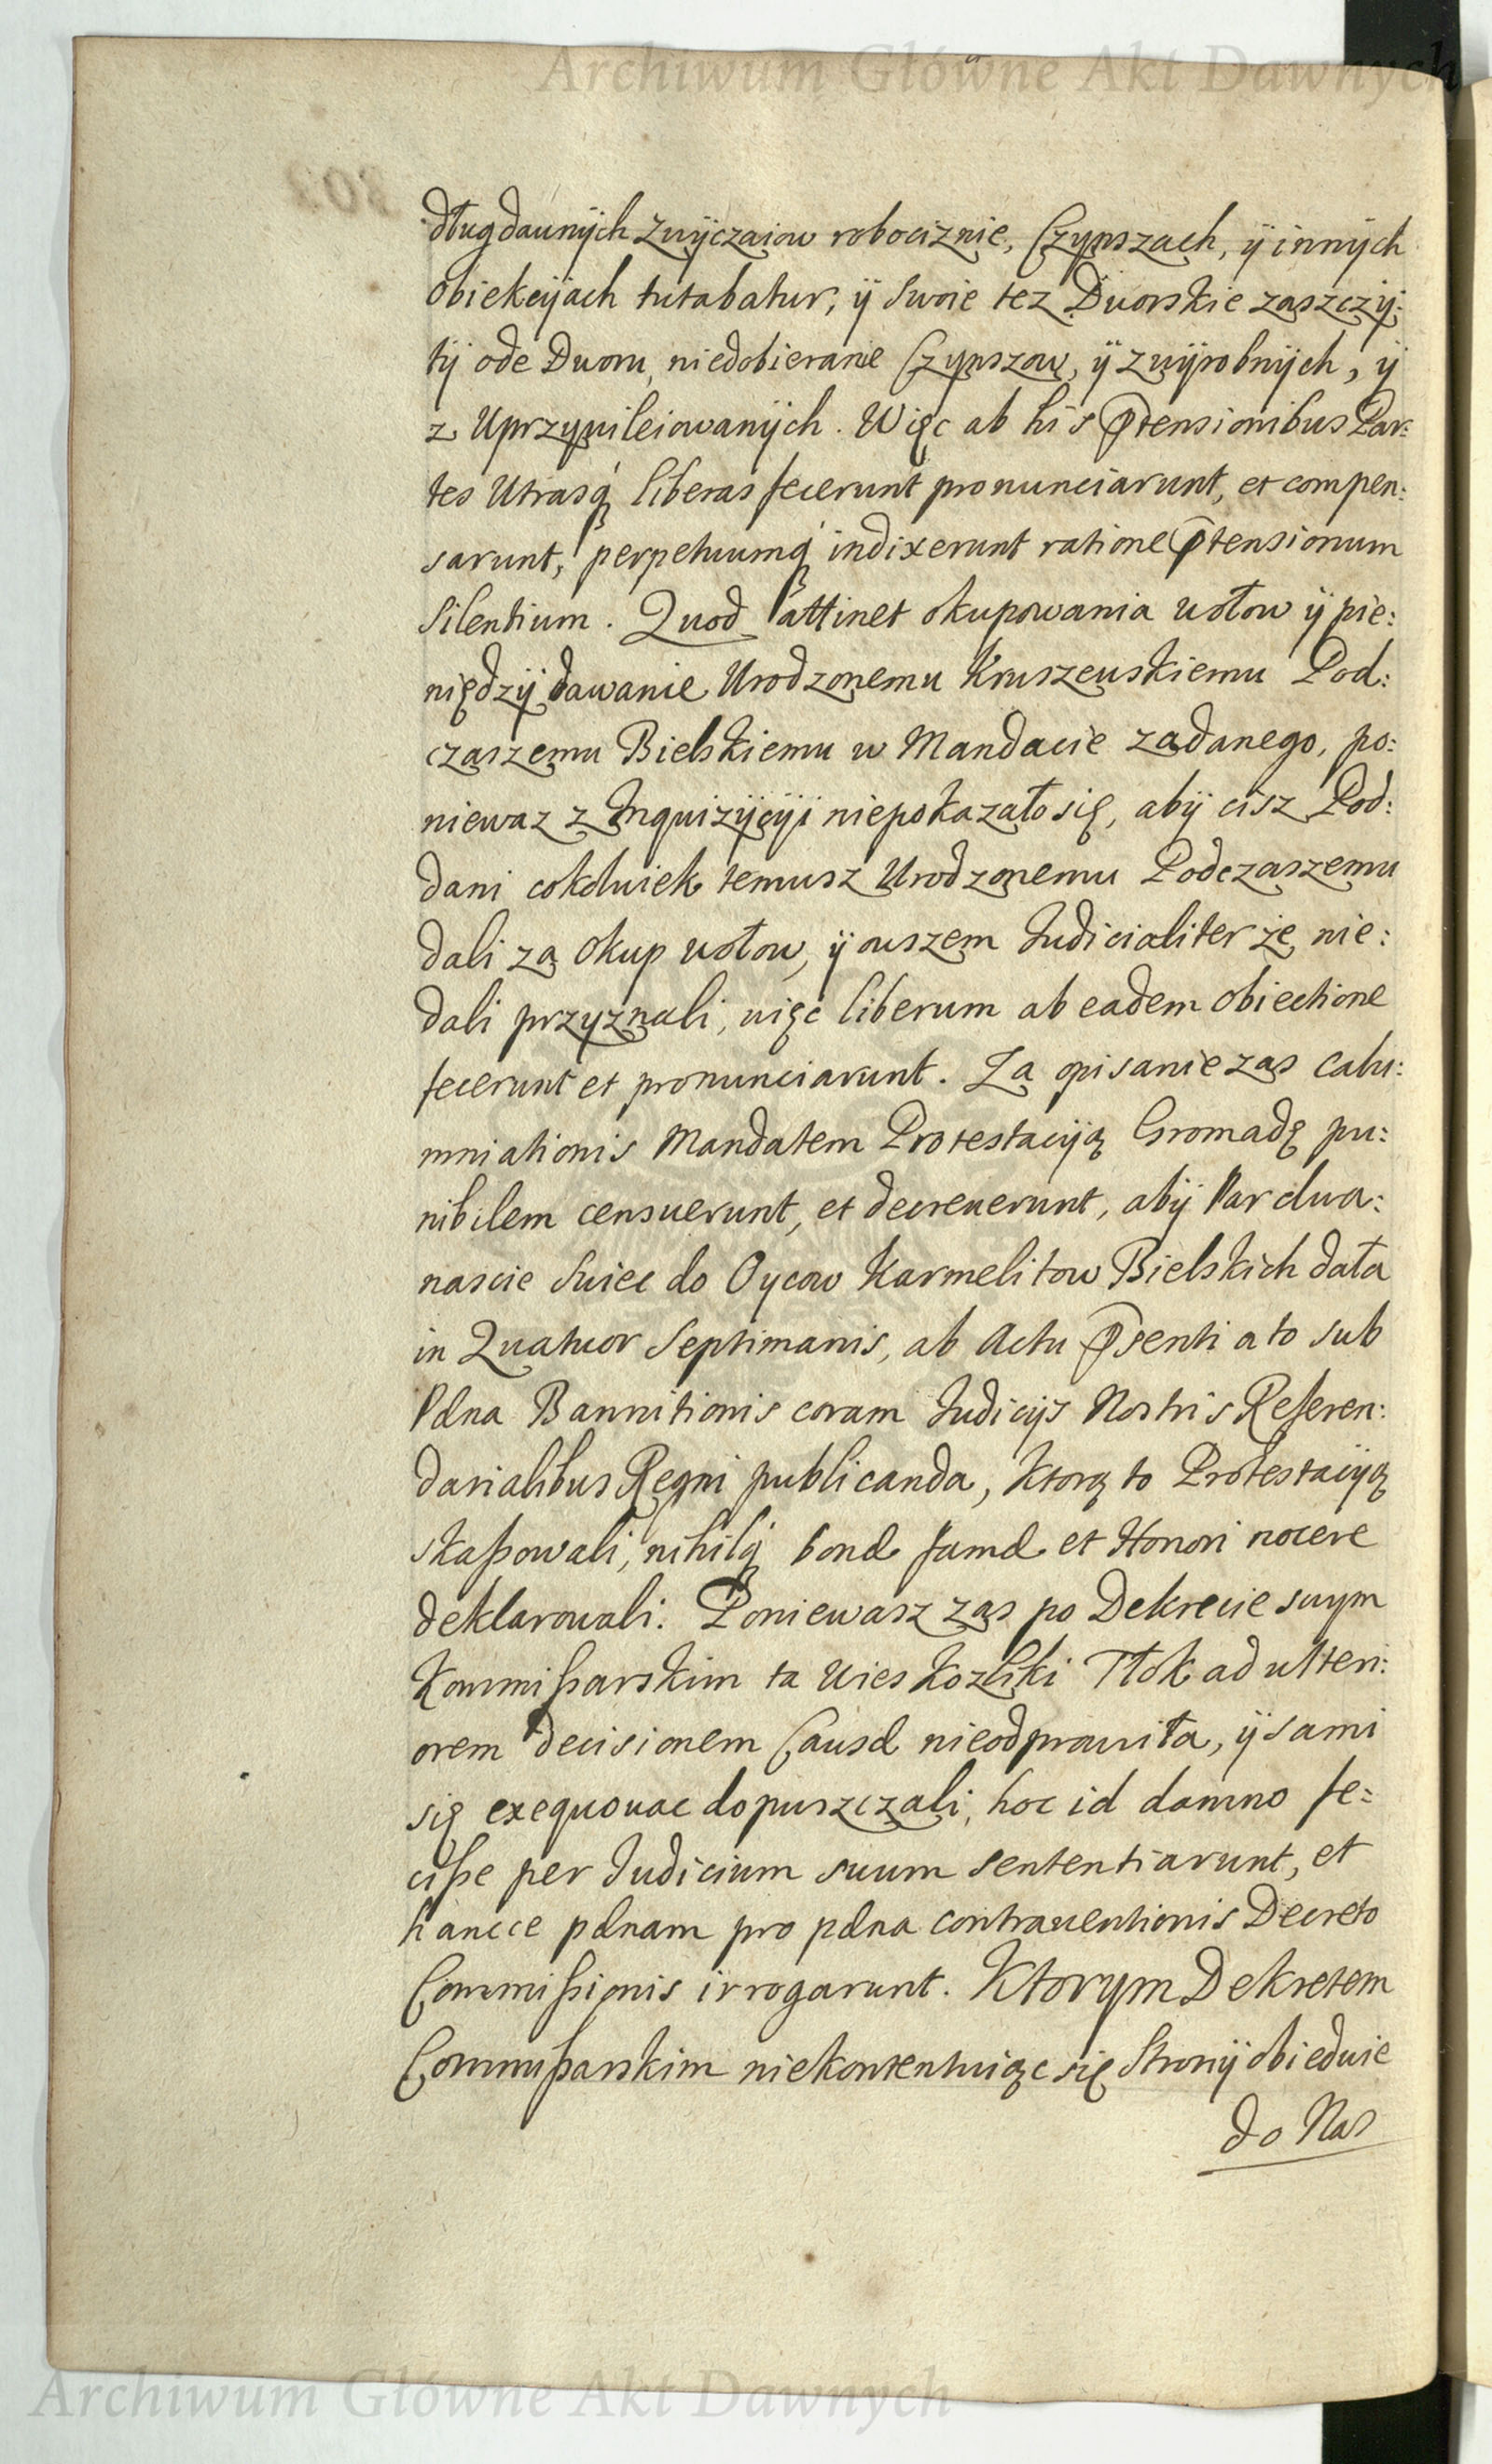 Archiwum Główne Akt Dawnych
803
dług dawnÿch zwÿczaiow robociznie, Czynszach, ÿ innÿch
obiekcÿiach tutabatur, ÿ swoie tez Dworskie zaszczÿ:
tÿ ode Dworu, niedobieranie Czynszow, ÿ zwÿrobnÿch, ÿ
z Uprzywileiowanÿch. Więc ab his Ptensionibus Par:
tes Utrasq́ liberas fecerunt pronunciarunt, et compen:
sarunt, perpetuumq́ indixerunt ratione Ptensionum
Silentium. Quod attinet okupowania wołow ÿ pie:
niędzÿ dawanie Urodzonemu Kruszewskiemu Pod:
czaszemu Bielskiemu w Mandacie zadanego, po:
niewaz z Inquizÿcÿi niepokazało się, abÿ cisz Pod:
dani cokolwiek temusz Urodzonemu Podczaszemu
dali za okup wołow, ÿ owszem Judicialiter że nie:
dali przyznali, więc liberum ab eadem obiectione
fecerunt et pronunciarunt. Za opisanie zas calu:
mniationis Mandatem Protestacyią Gromadę pu:
nibilem censuerunt, et decreuerunt, abÿ Par dwa:
nascie swiec do Oycow Karmelitow Bielskich dała
in Quatuor Septimanis, ab Actu Psenti a to sub
Pæna Bannitionis coram Judicijs Nostris Referen:
darialibus Regni publicanda, Ktorą to Protestacyią
skaßowali, nihilq́ bonæ famæ et Honori nocere
deklarowali. Poniewasz zas po Dekrecie swym
Kommißarskim ta wies Kozliki Tłok ad ulteri:
orem decisionem Causæ nieodprawiła, ÿ sami
się exequowac dopuszczali, hoc id damno fe=
ciße per Judicium suum sententiarunt, et
hancce pænam pro pæna contrauentionis Decreto
Commißionis irrogarunt. Ktorym Dekretem
Commißarskim niekontentuiąc się Stronÿ obiedwie
do Nas
Archiwum Główne Akt Dawnych